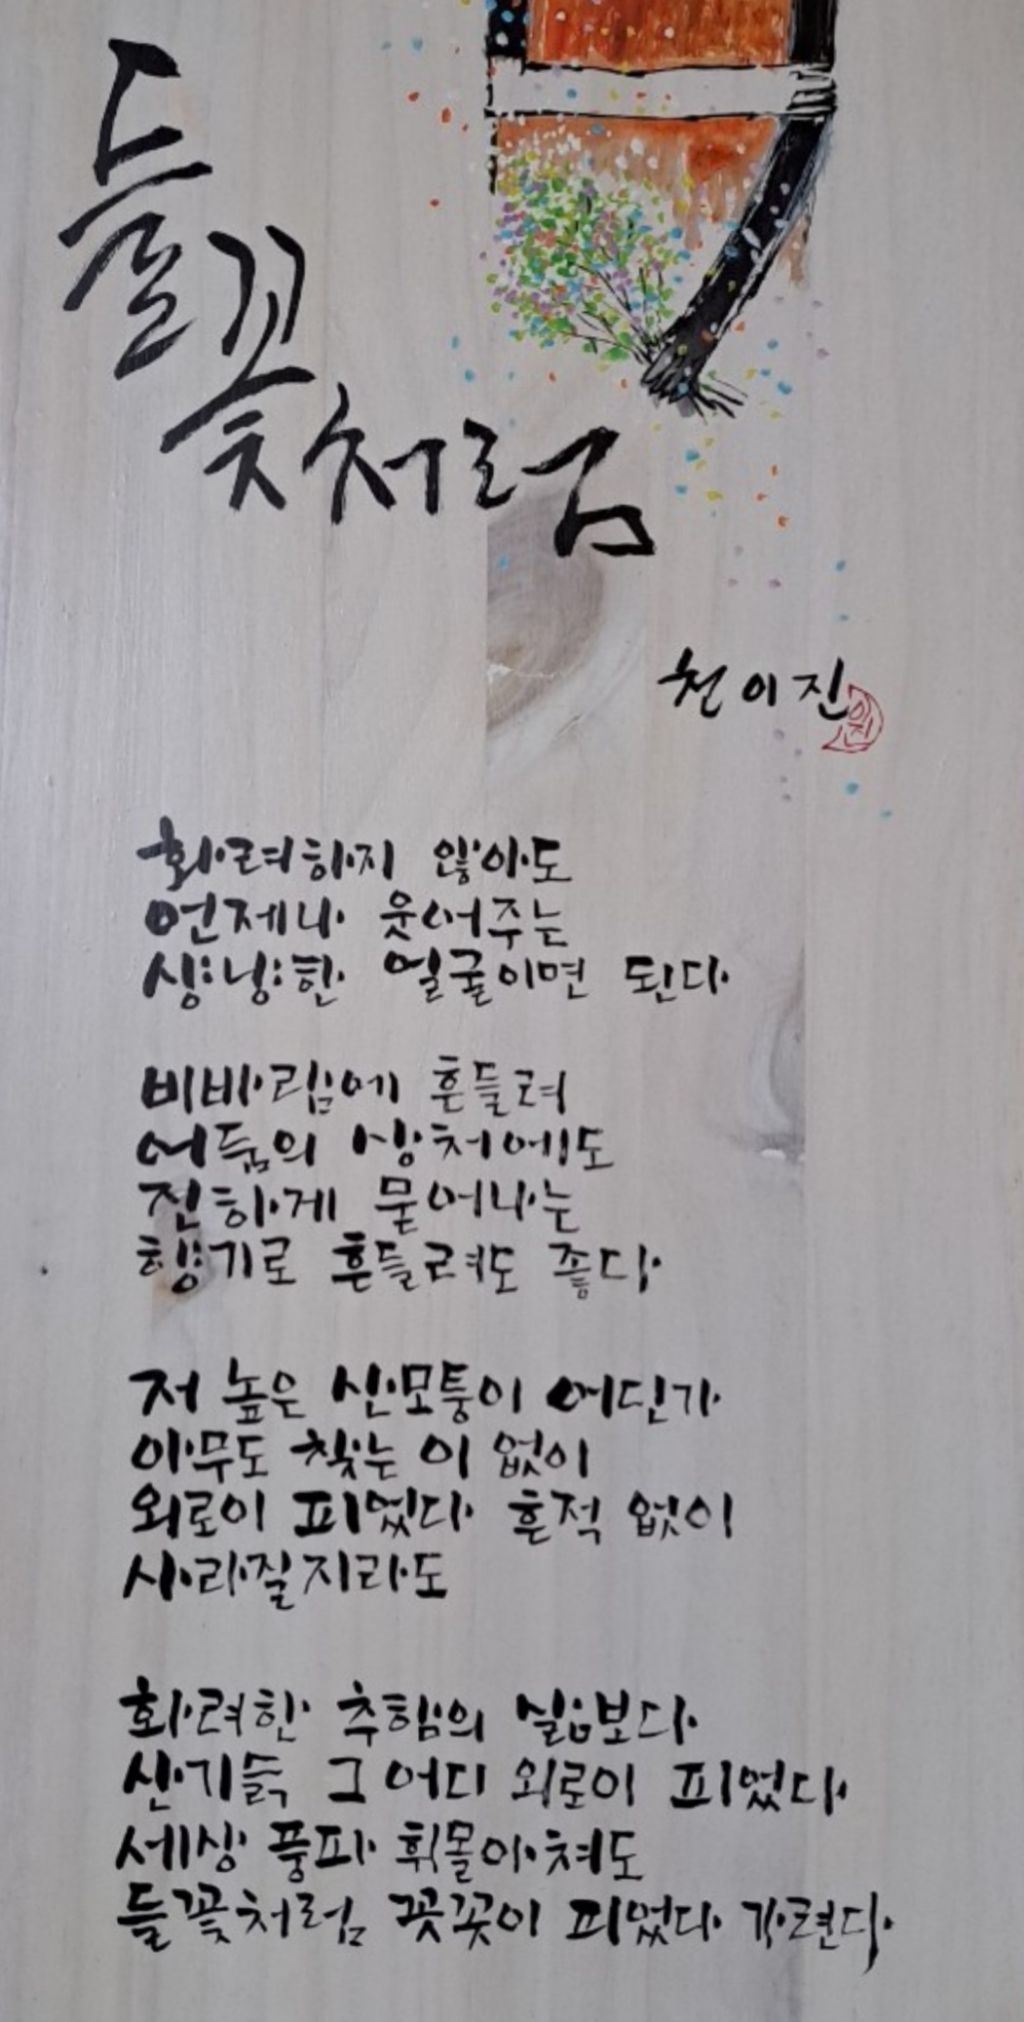 들꽃처럼
천이진
이진
화려하지 않아도
언제나 웃어주는
상냥한 얼굴이면 된다
비바람에 흔들려
어둠의 상처에도
진하게 묻어나는
향기로 흔들려도 좋다
저 높은 산모퉁이 어딘가
아무도 찾는 이 없이
외로이 피었다 흔적 없이
사라질지라도
화려한 추함의 삶보다
산기슭 그 어디 외로이 피었다
세상 풍파 휘몰아쳐도
들꽃처럼 꼿꼿이 피었다 가련다